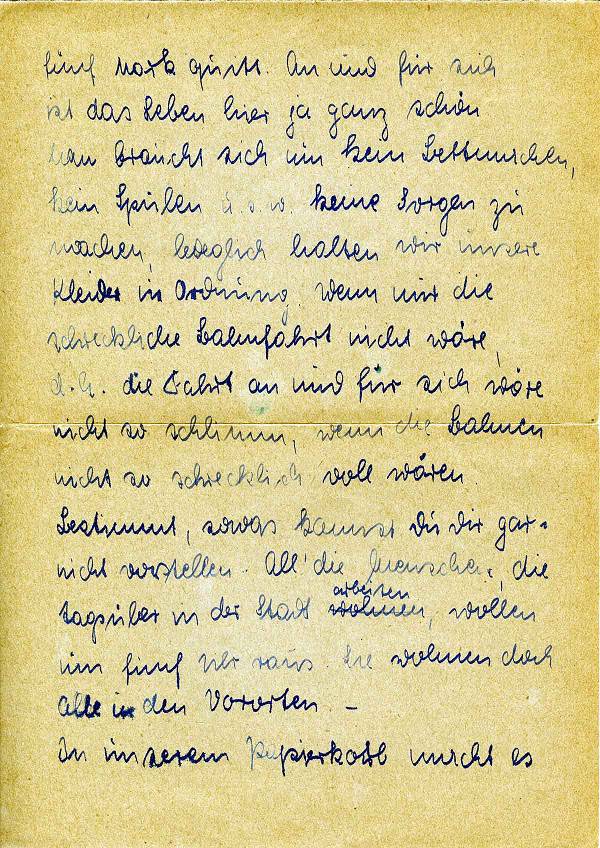 fünf Mark quitt. An und für sich
ist das Leben hier ja ganz schön
man braucht sich um kein Bettmachen,
kein Spülen u.s.w. keine Sorgen zu
machen, lediglich halten wir unsere
Kleider in Ordnung. Wenn nur die
schreckliche Bahnfahrt nicht wäre,
d.h. die Fahrt an und für sich wäre
nicht so schlimm, wenn die Bahnen
nicht so schrecklich voll wären.
Bestimmt, sowas kannst Du Dir gar-
nicht vorstellen. All' die Menschen, die
tagsüber in der Stadt wohnen arbeiten, wollen
um fünf Uhr raus. Sie wohnen doch
alle in den Vororten. –
In unserem Papierkorb  es